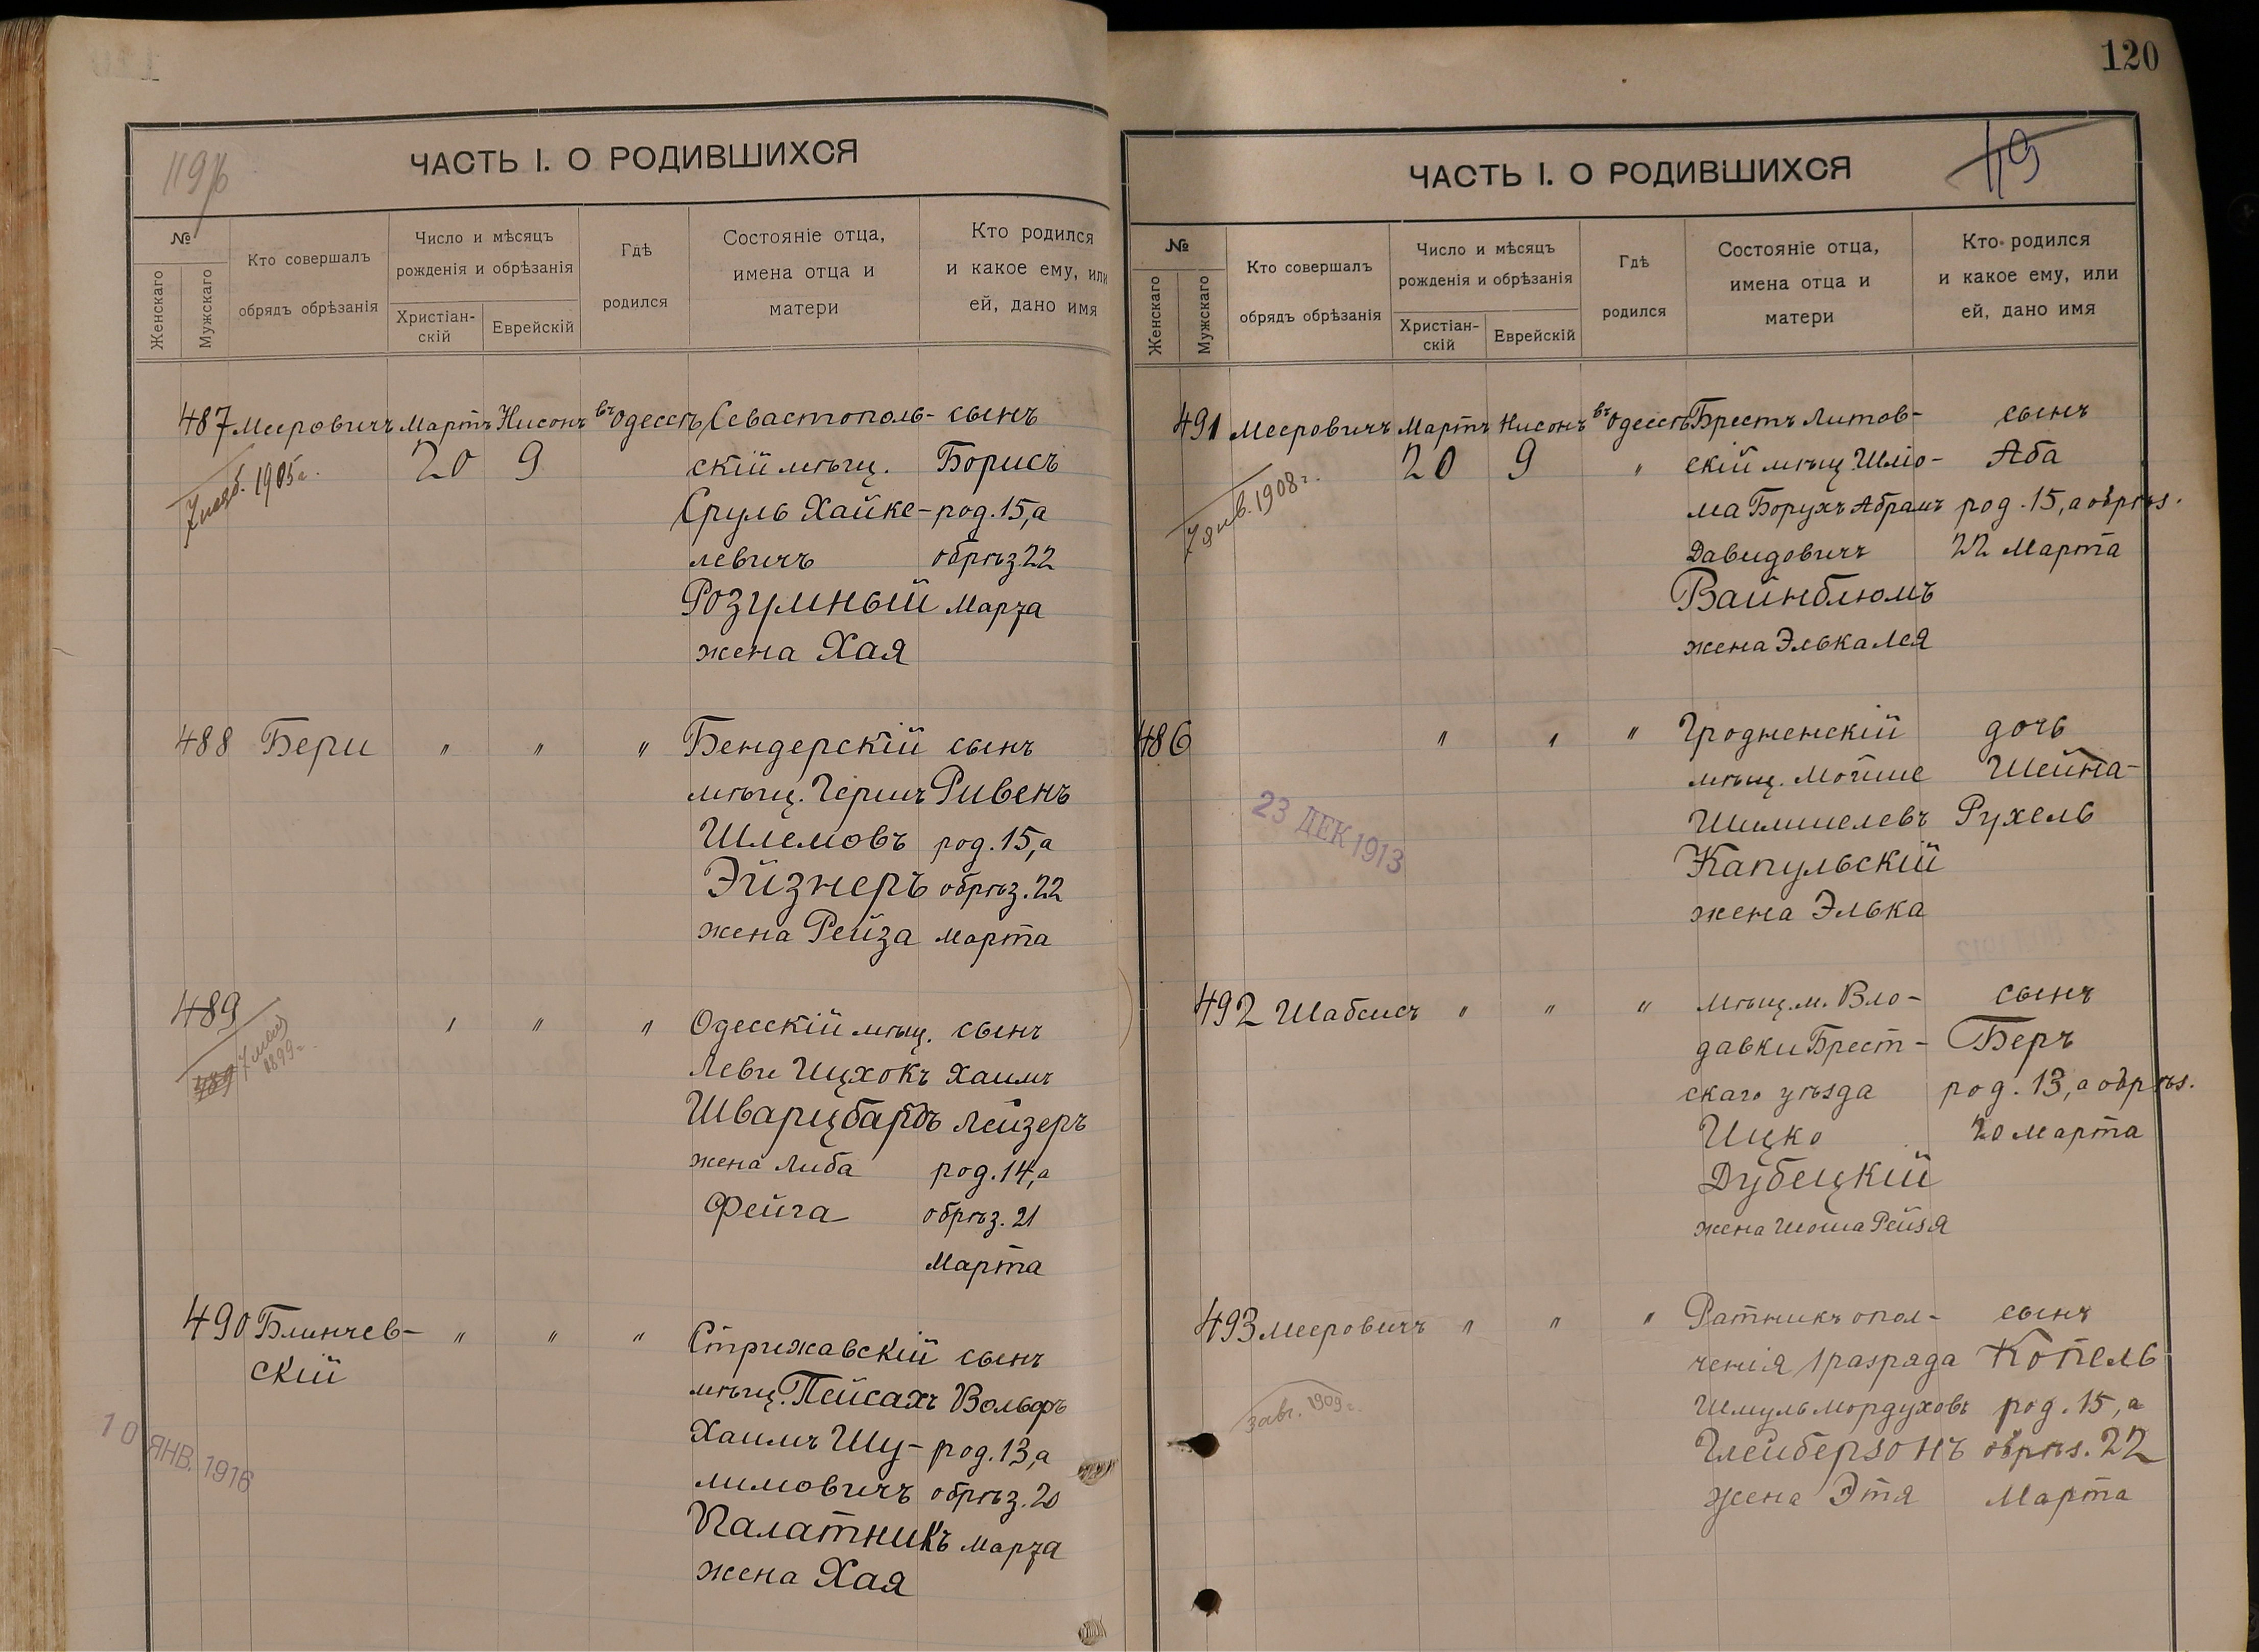 119б
ЧАСТЬ I. О РОДИВШИХСЯ
№
Женскаго
Мужскаго
Кто совершалъ
обрядъ обрѣзанія
Число и мѣсяцъ
рожденія и обрѣзанія
Христіан-
скій
Еврейскій
Гдѣ
родился
Состояніе отца,
имена отца и
матери
Кто родился
и какое ему, или
ей, дано имя
487 Мееровичъ Мартъ Нисонъ въ Одессѣ Севастополь- сынъ
1905 г. 20 9 скій мѣщ. Борисъ
Сруль Хайке- род. 15, а
левичъ обрѣз 22
Розумный Марта
жена Хая
488 Бери " " " Бендерскій сынъ
мѣщ. Гершъ Ривенъ
Шлемовъ род. 15, а
Эйзнеръ обрѣз. 22
жена Рейза марта
489 " " " Одесскій мѣщ. сынъ
1899 г. Леви Ицхокъ Хаимъ
Шварцбардъ Лейзеръ
жена Либа род. 14, а
Фейга обрѣз. 21
Марта
490 Блинчев- " " " Стрижавскій сынъ
скій мѣщ. Пейсахъ Вольфъ
Хаимъ Шу- род. 13, а
лимовичъ обрѣз. 20
Палатникъ марта
жена Хая
10 ЯНВ. 1916
120
ЧАСТЬ I. О РОДИВШИХСЯ
119
№
Женскаго
Мужскаго
Кто совершалъ
обрядъ обрѣзанія
Число и мѣсяцъ
рожденія и обрѣзанія
Христіан-
скій
Еврейскій
Гдѣ
родился
Состояніе отца,
имена отца и
матери
Кто родился
и какое ему, или
ей, дано имя
491 Мееровичъ Мартъ Нисонъ въ Одессѣ Брестъ Литов- сынъ
7 янв. 1908 г. 20 9 " скій мѣщ. Шліо- Аба
ма Борухъ Абрамъ род. 15, а обрѣз.
Давидовичъ 22 Марта
Вайнблюмъ
жена Элька Лея
486 " " " Гродненскій дочь
мѣщ. Мойше Шейна-
Шимшелевъ Рухель
Капульскій
жена Элька
23 ДЕК 1913
492 Шабсисъ " " " мѣщ. м. Вло- сынъ
давки Брест- Беръ
скаго уѣзда род. 13, а обрѣз.
Ицко 20 марта
Дубецкій
жена Шоша Рейзя
493 Мееровичъ " " " Ратникъ опол- сынъ
ченія 1 разряда Копель
Шмуль Мордуховъ род. 15, а
Глейберзонъ обрѣз. 22
жена Этя Марта
3 авг. 1909 г.